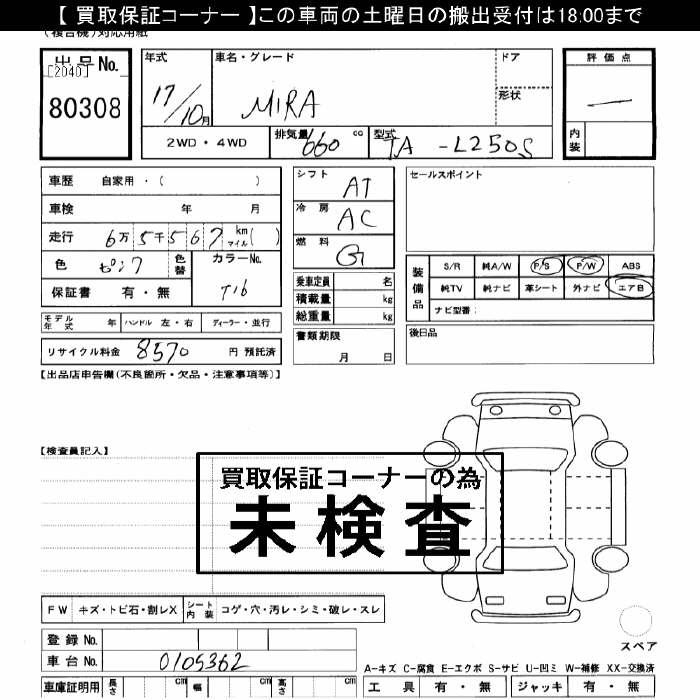 【 買取保証コーナー 】この車両の土曜日の搬出受付は18:00まで
(複合機)対応用紙
出品No.
[2040]
80308
年式
17/10月
車名・グレード
MIRA
ドア
形状
評価点
—
内装
2WD・4WD
排気量
660 cc
型式
TA -L250S
車歴 自家用・( )
車検 年 月
走行 6万5千567 km マイル( )
色 ピンク
色替
カラーNo.
T16
保証書 有・無
モデル年式 年
ハンドル 左・右
ディーラー・並行
リサイクル料金 8570 円 預託済
シフト AT
冷房 AC
燃料 G
乗車定員 名
積載量 kg
総重量 kg
書類期限
月 日
セールスポイント
装備品
S/R 純A/W P/S P/W ABS
純TV 純ナビ 革シート 外ナビ エアB
ナビ型番：
後日品
【出品店申告欄(不良箇所・欠品・注意事項等)】
【検査員記入】
買取保証コーナーの為
未検査
FW キズ・トビ石・割レX
シート内装 コゲ・穴・汚レ・シミ・破レ・スレ
登録No.
車台No. 0105362
車庫証明用 長さ cm 幅 cm 高さ cm
スペア
A-キズ C-腐食 E-エクボ S-サビ U-凹ミ W-補修 XX-交換済
工具 有・無 ジャッキ 有・無